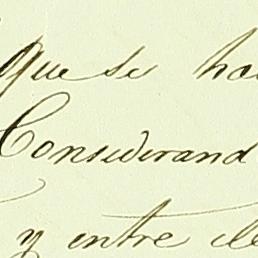 que se ha
Considerand
y entre el